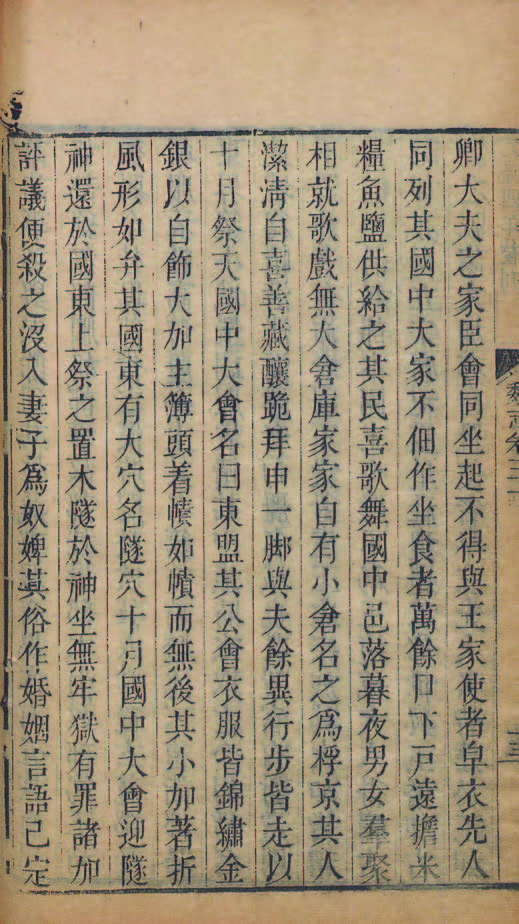 卿大夫之家臣會同坐起不得與王家使者皁衣先人
同列其國中大家不佃作坐食者萬餘口下戸遠擔米
糧魚鹽供給之其民喜歌舞國中邑落暮夜男女羣聚
相就歌戲無大倉庫家家自有小倉名之爲桴京其人
潔清自喜善藏釀跪拜申一脚與夫餘異行步皆走以
十月祭天國中大會名曰東盟其公會衣服皆錦繡金
銀以自飾大加主簿頭着幘如幘而無後其小加著折
風形如弁其國東有大穴名隧穴十月國中大會迎隧
神還於國東上祭之置木隧於神坐無牢獄有罪諸加
評議便殺之沒入妻子爲奴婢其俗作婚姻言語已定
魏志卷三
十三